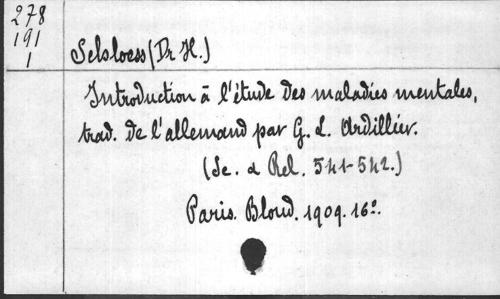 278
191
1
Selsloess (Dr H.)
Introduction à l'étude des maladies mentales,
trad. de l'allemand par G. L. Ardillier.
(Sc. & Rel. 541-542.)
Paris. Bloud. 1909. 16º.